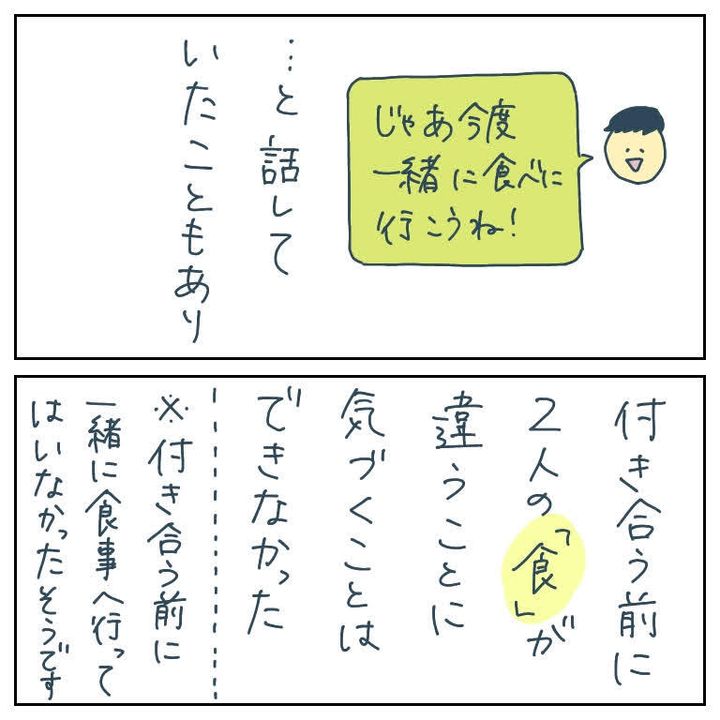 じゃあ今度
一緒に食べに
行こうね！
…と話して
いたこともあり
付き合う前に
2人の「食」が
違うことに
気づくことは
できなかった
※付き合う前に
一緒に食事へ行って
はいなかったそうです